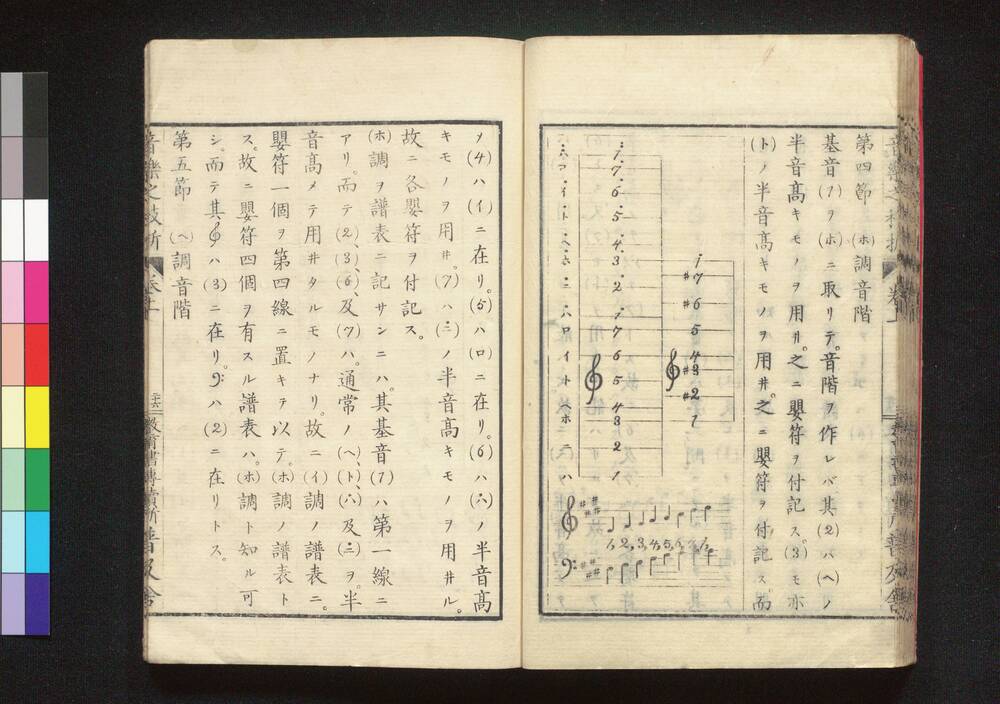 第四節 (ホ)調音階
基音(1)ヲ(ホ)ニ取リテ。音階ヲ作レバ其(2)ハ(ヘ)ノ
半音高キモノヲ用井。之ニ嬰符ヲ付記ス。(3)モ亦
(ト)ノ半音高キモノヲ用井。之ニ嬰符ヲ付記ス。而
i
#7
#6
5
4
#3
#2
1
i
7
6
5
4
3
2
i
7
6
5
4
3
2
1
ロ イ ト ヘ ホ ニ ハ
1, 2, 3, 4, 5, 6, 7, 1,
メ(4)ハ(イ)ニ在リ。(5)ハ(ロ)ニ在リ。(6)ハ(ハ)ノ半音高
キモノヲ用井。(7)ハ(ニ)ノ半音高キモノヲ用井ル。
故ニ各嬰符ヲ付記ス。
(ホ)調ヲ譜表ニ記サンニハ。其基音(1)ハ第一線ニ
アリ。而テ(2)、(3)、(6)、及(7)ハ。通常ノ(ヘ)、(ト)、(ハ)及(ニ)ヲ。半
音高メテ用井タルモノナリ。故ニ(イ)調ノ譜表ニ。
嬰符一個ヲ第四線ニ置キテ以テ。(ホ)調ノ譜表ト
ス。故ニ嬰符四個ヲ有スル譜表ハ。(ホ)調ト知ル可
シ。而テ其𝄞ハ(3)ニ在リ。𝄢ハ(2)ニ在リトス。
第五節 (ヘ)調音階